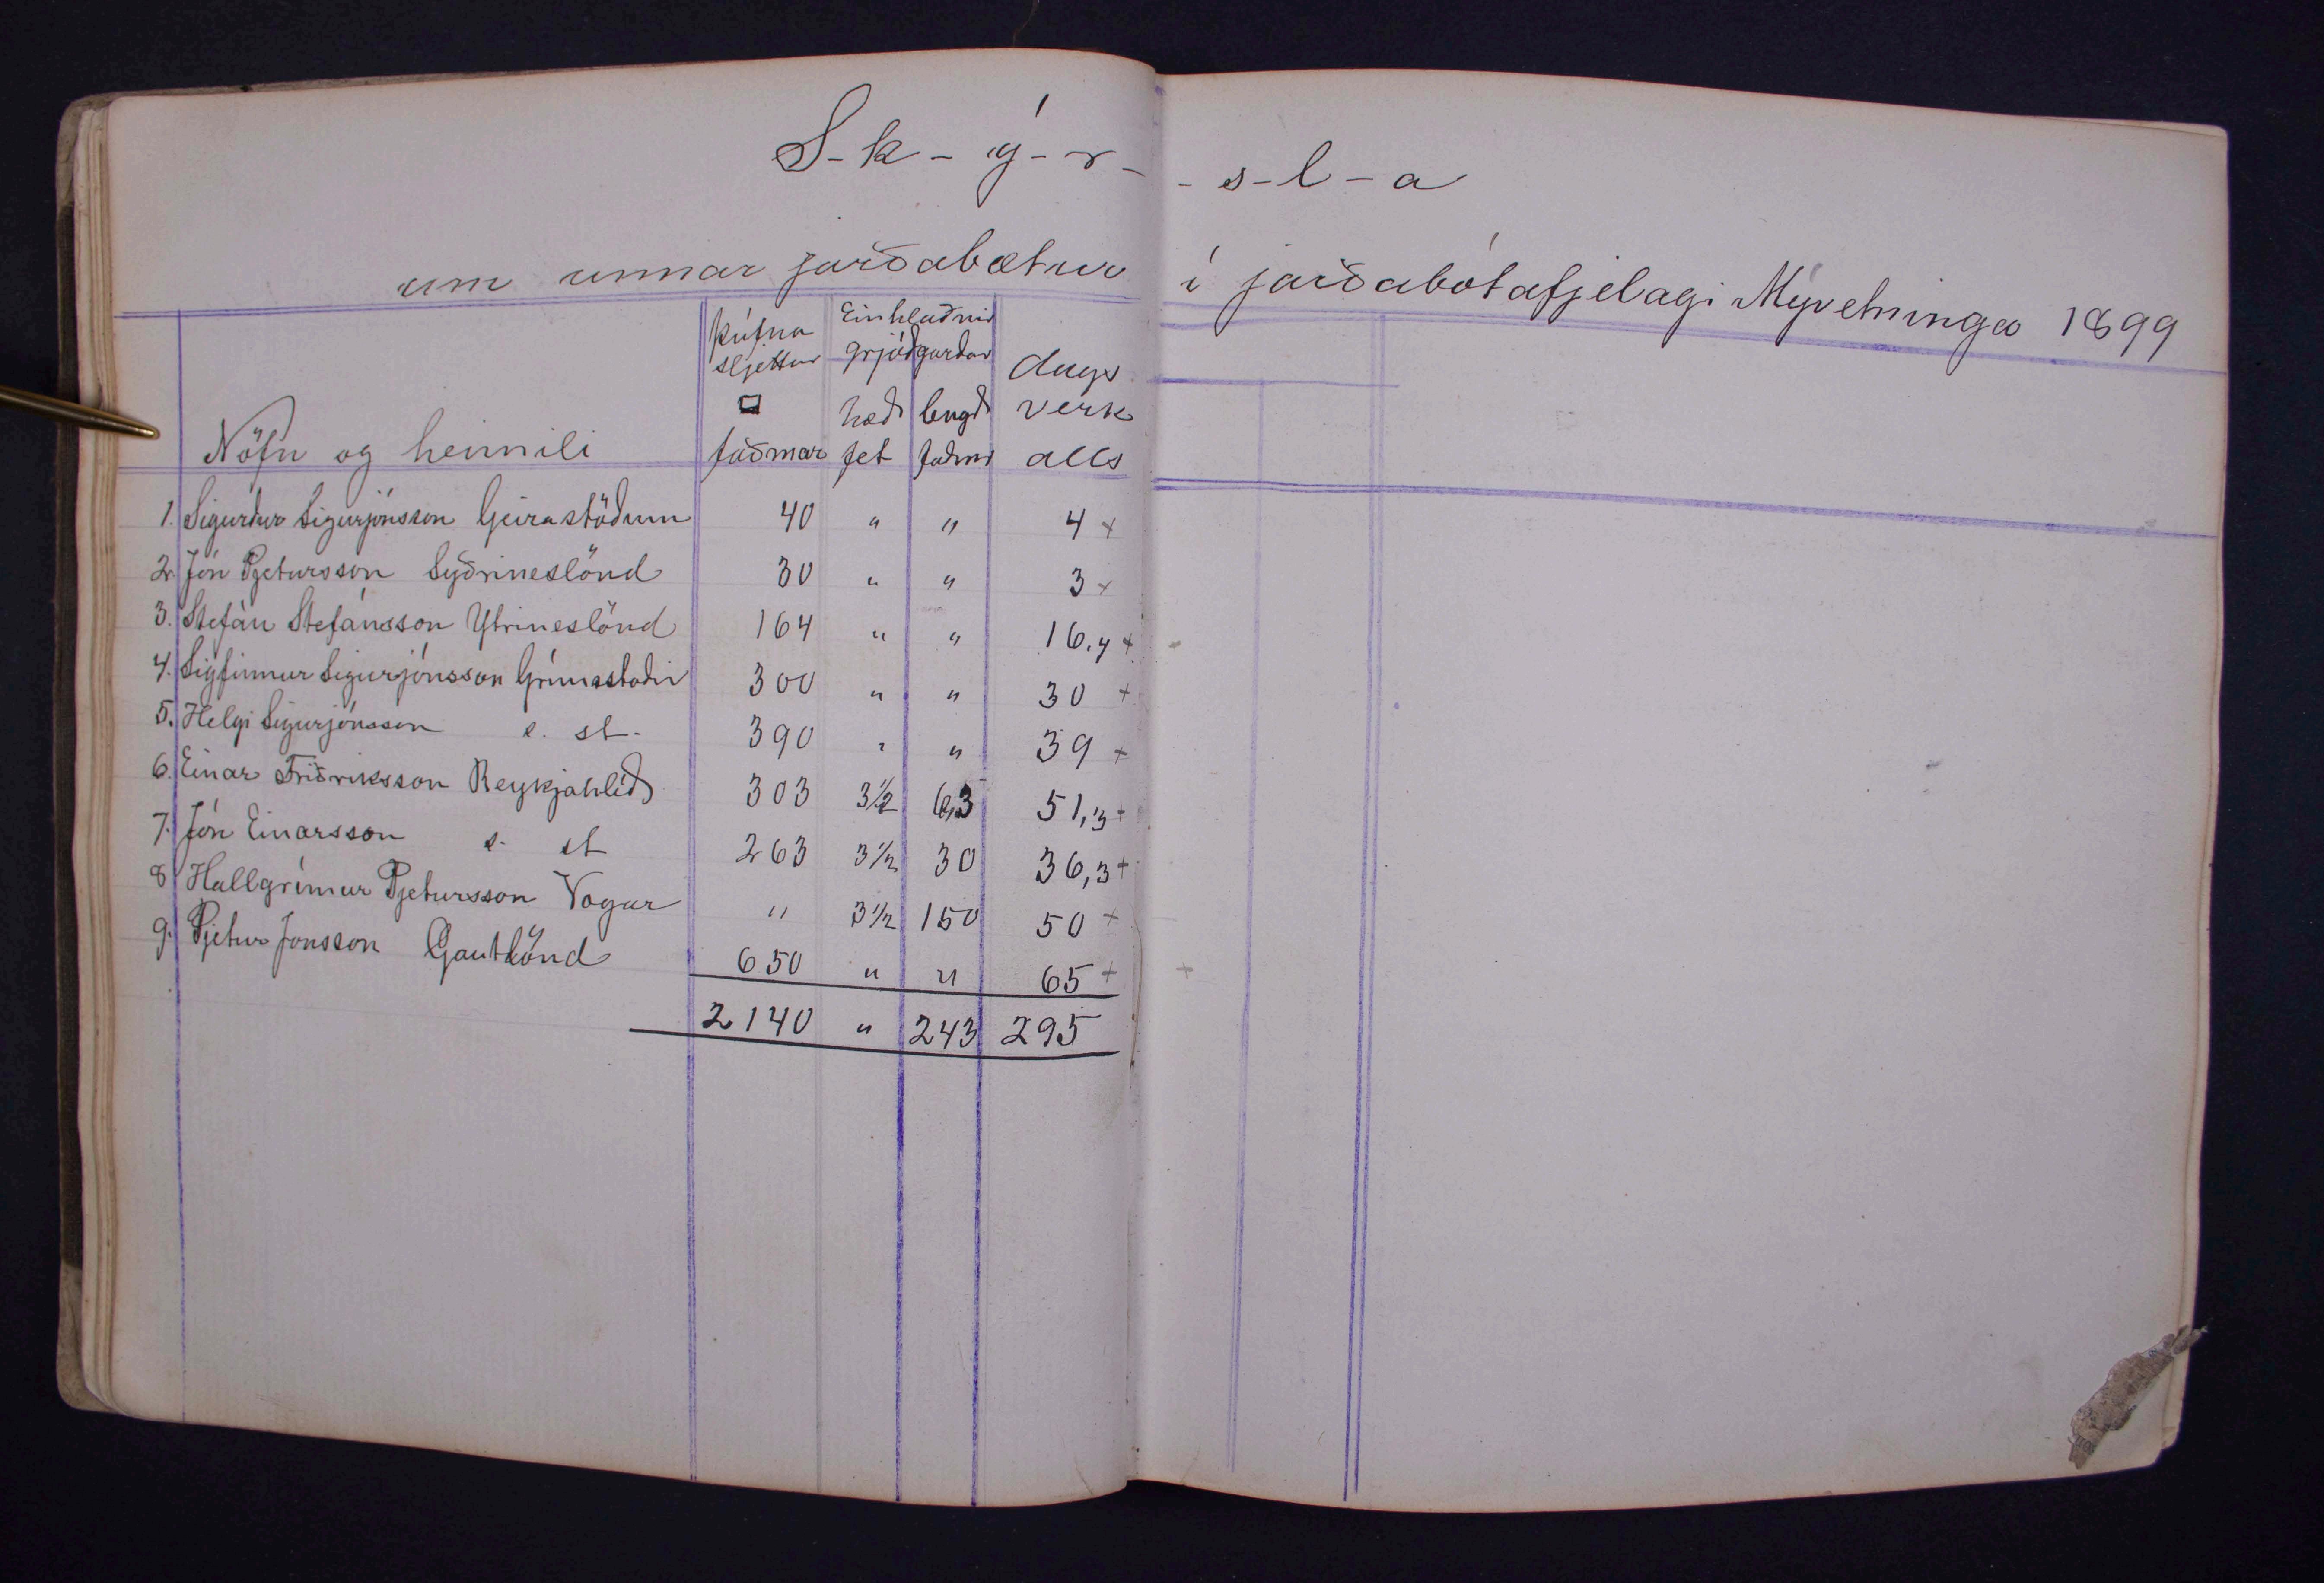 S-k-ý-r- -s-l-a
um unnar jarðabætur í jarðabótafjelagi Mývetninga 1899
Nöfn og heimili | þúfna sljettur □ faðmar | Einhlaðnir grjótgarðar hæð fet | lengd faðmr | dags verk alls
1. Sigurður Sigurjónsson Geirastöðum 40 " " 4 +
2. Jón Pjetursson Syðrineslönd 30 " " 3 +
3. Stefán Stefánsson Ytrineslönd 164 " " 16.4 +
4. Sigfinnur Sigurjónsson Grímsstaðir 300 " " 30 +
5. Helgi Sigurjónsson s. st. 390 " " 39 +
6. Einar Friðriksson Reykjahlíð 303 3 1/2 63 51,3 +
7. Jón Einarsson s. st 263 3 1/2 30 36,3 +
8 Hallgrímur Pjetursson Vogar " 3 1/2 150 50 +
9. Pjetur Jónsson Gautlönd 650 " " 65 + +
2140 " 243 295